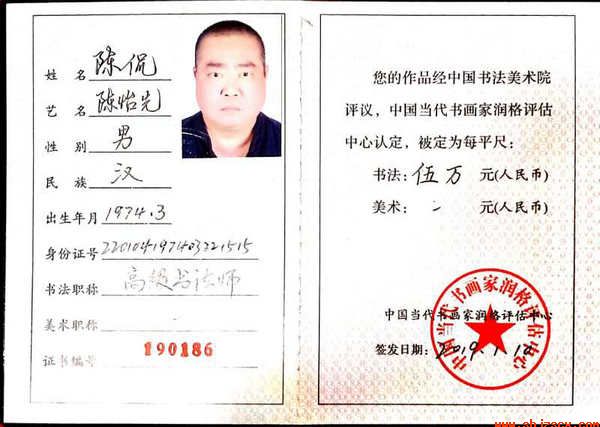 姓名 陈侃
艺名 陈怡先
性别 男
民族 汉
出生年月 1974.3
身份证号 220104197403221515
书法职称 高级书法师
美术职称 -
证书编号 190186
您的作品经中国书法美术院
评议，中国当代书画家润格评估
中心认定，被定为每平尺：
书法：伍万 元(人民币)
美术： - 元(人民币)
中国当代书画家润格评估中心
签发日期：2019.1.12
中国当代书画家润格评估中心